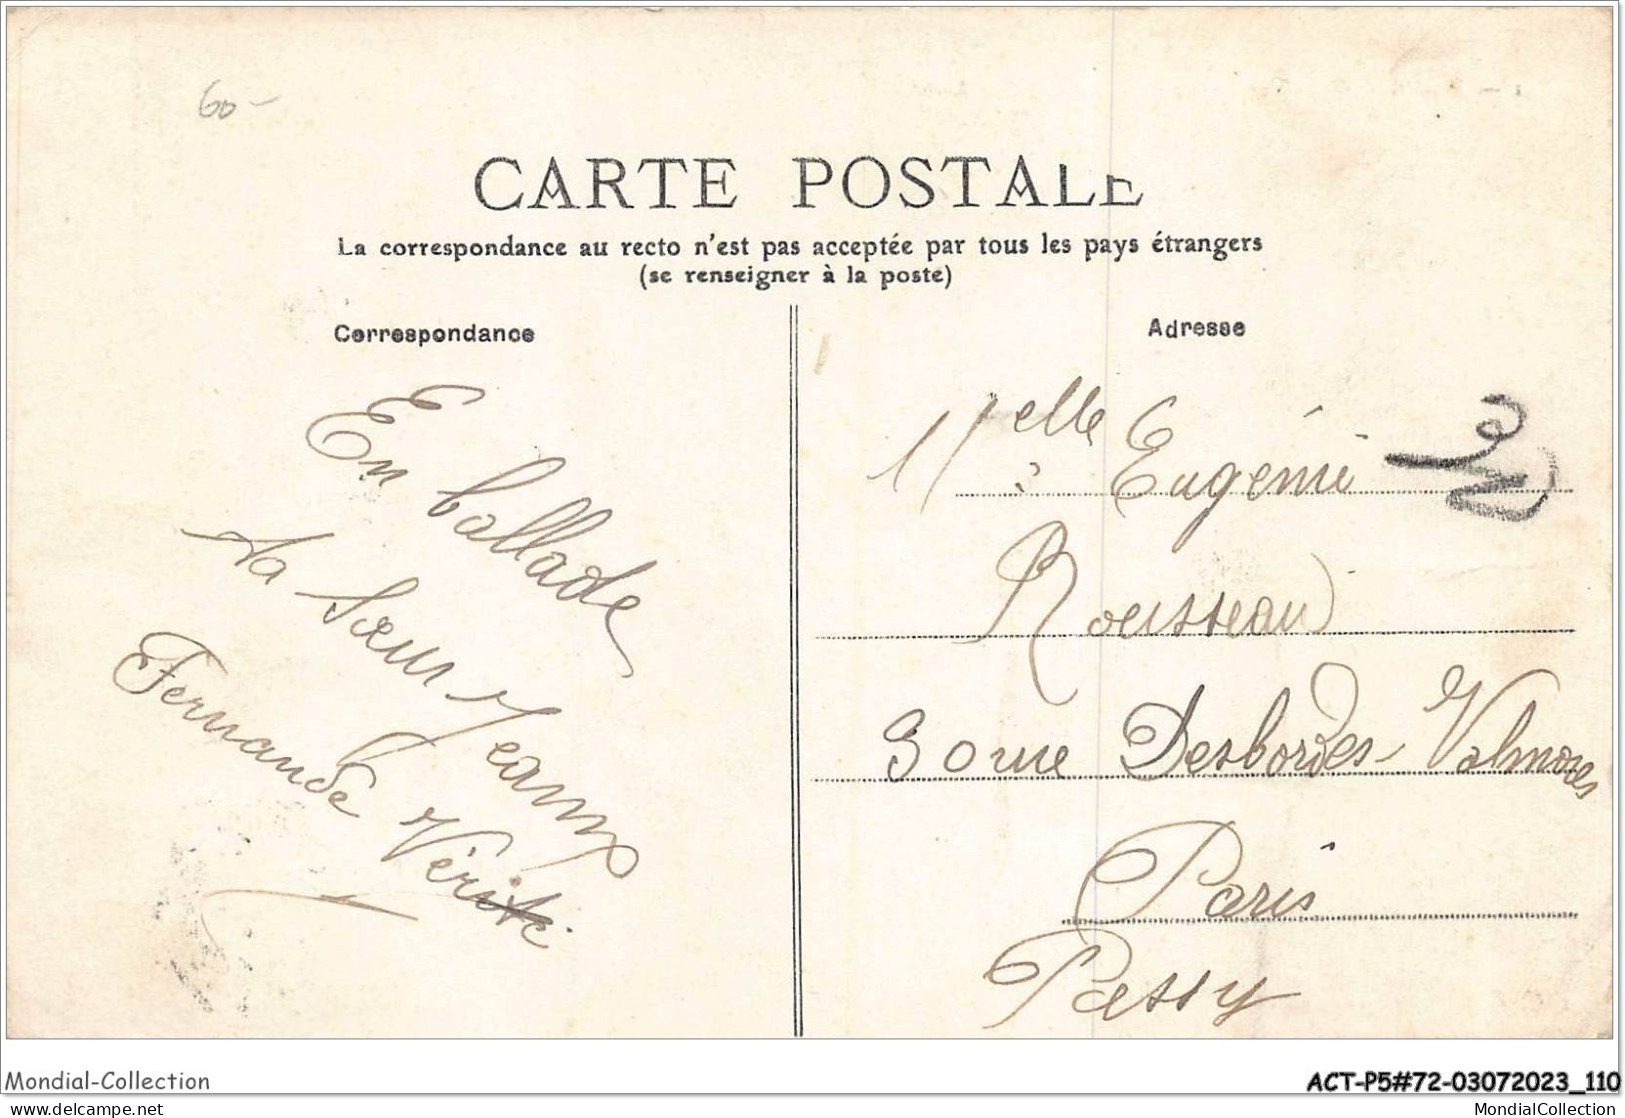 60-
CARTE POSTALE
La correspondance au recto n'est pas acceptée par tous les pays étrangers
(se renseigner à la poste)
Correspondance
En ballade
Ta sœur Jeanne
Fernande Vérité
Adresse
Melle Eugénie
Rousseau
30 rue Desbordes-Valmores
Paris
Passy
Mondial-Collection
ACT-P5#72-03072023_110
www.delcampe.net
MondialCollection